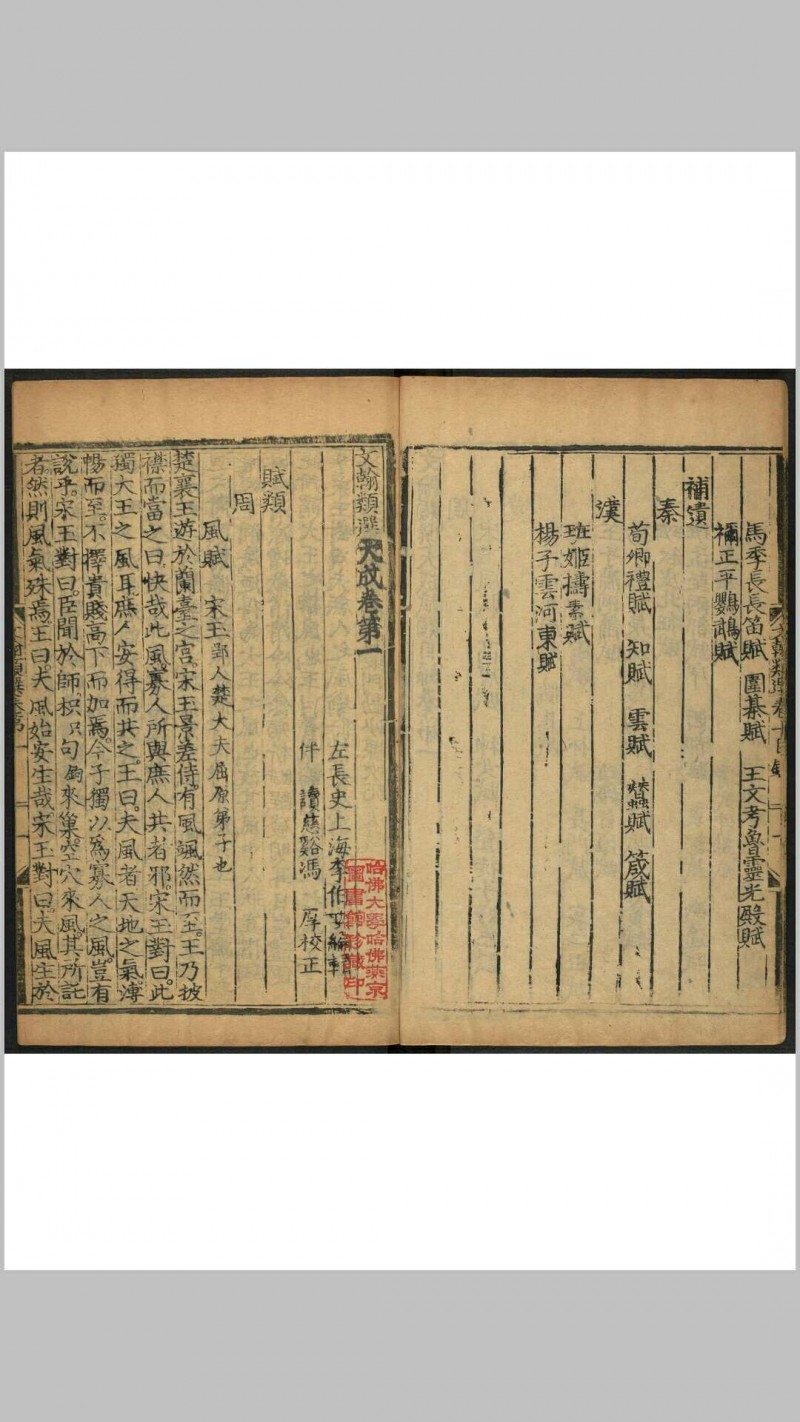 馬季長長笛賦　圍棊賦　王文考魯靈光殿賦
禰正平鸚鵡賦
補遺
秦
荀卿禮賦　知賦　雲賦　蠶賦　箴賦
漢
班姬擣素賦
楊子雲河東賦
文翰類選大成卷第一
左長史上海李伯璵編輯
伴　讀慈谿馮　厚校正
賦類
周
風賦　宋玉郢人楚大夫屈原弟子也
楚襄王遊於蘭臺之宮宋玉景差侍有風颯然而至王乃披
襟而當之曰快哉此風寡人所與庶人共者邪宋玉對曰此
獨大王之風耳庶人安得而共之王曰夫風者天地之氣溥
暢而至不擇貴賤高下而加焉今子獨以爲寡人之風豈有
說乎宋玉對曰臣聞於師枳句來巢空穴來風其所託
者然則風氣殊焉王曰夫風始安生哉宋玉對曰夫風生於
哈佛大學哈佛燕京
圖書館珍藏印